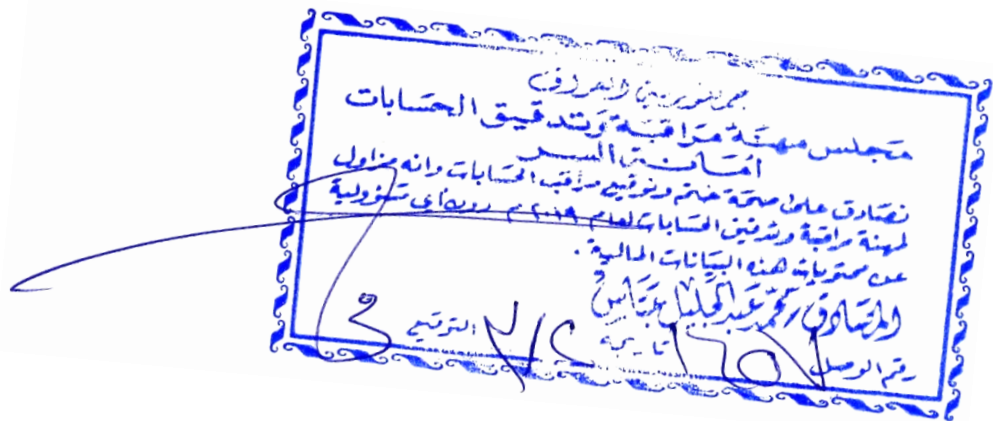 جمهورية العراق
مجلس مهنة مراقبة وتدقيق الحسابات
امانة السر
نصادق على صحة ختم وتوقيع مراقب الحسابات وانه مزاول
لمهنة مراقبة وتدقيق الحسابات لعام ٢٠١٨م دون أي مسؤولية
عن محتويات هذه البيانات المالية .
المصادق / محمد عبد الجليل عباس
رقم الوصل تاريخه التوقيع